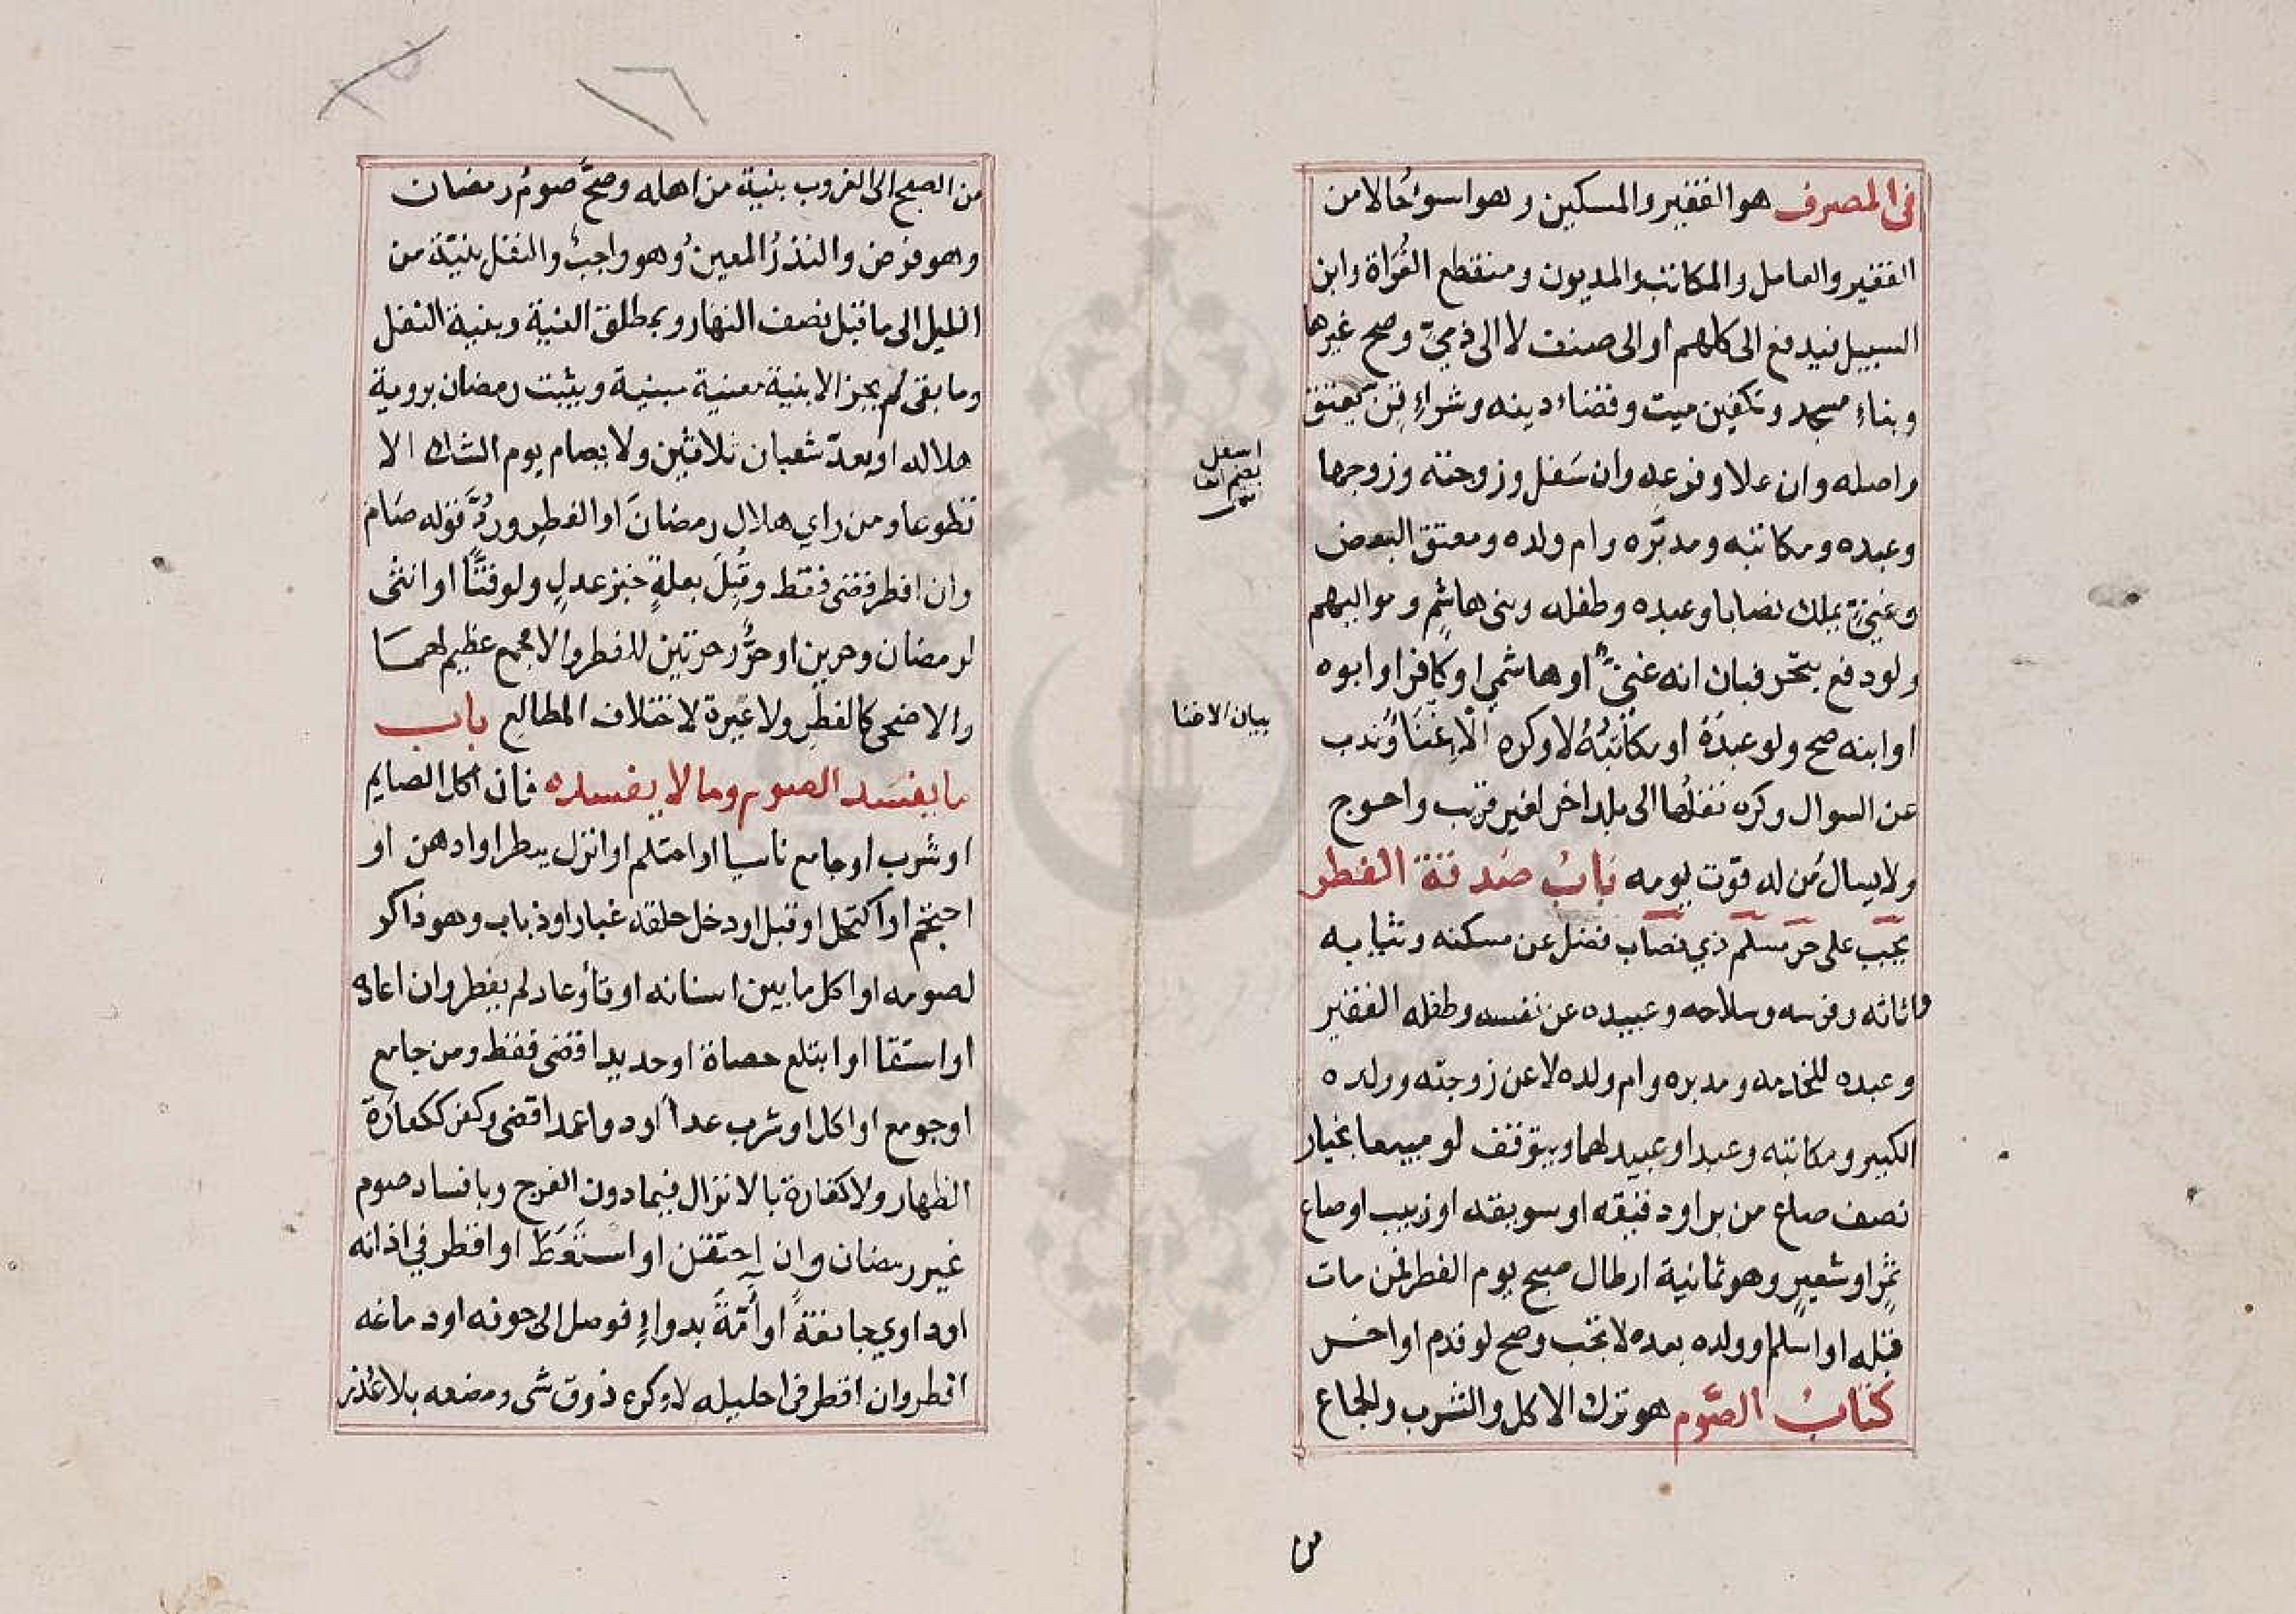 في المصرف هو الفقير والمسكين وهو اسوء حالا من
الفقير والعامل والمكاتب والمديون ومنقطع الغزاة وابن
السبيل فيدفع الى كلهم او الى صنف لا الى ذميّ وصح غيرها
وبناء مسجد وتكفين ميت وقضاء دينه وشراء قنّ يعتق
واصله وان علا وفرعه وان سَفل وزوجته وزوجها
وعبده ومكاتبه ومدبّره وام ولده ومعتق البعض
وغنيّ يملك نصابا وعبده وطفله وبنى هاشم ومواليهم
ولو دفع بتحر فبان انه غنيٌّ او هاشمي او كافر او ابوه
او ابنه صح ولو عبدَهُ او مكاتبُهُ لا وكره الاغنَا وندب
عن السوال وكره نقلُها الى بلد اخر لغير قريب واحوج
ولا يسال مَن له قوت يومه بابُ صَدقة الفطر
يجب على حر مسلم ذي نصاب فضل عن مسكنه وثيابه
واثاثه وفرسه وسلاحه وعبيده عن نفسه وطفله الفقير
وعبده للخدمه ومدبره وام ولده لا عن زوجته وولده
الكبير ومكاتبه وعبد او عبيد لهما ويتوقف لو مبيعا بخيار
نصف صاع من بر او دقيقه او سويقه او زبيب او صاع
تمر او شعير وهو ثمانية ارطال صبح يوم الفطر فمن مات
قبله او اسلم او ولده بعده لا تجب وصح لو قدم او اخر
كتابُ الصّوم هو ترك الاكل والشرب والجماع
اسفل
بضم الفا
بيان الاغنا
من
١٦
من الصبح الى الغروب بنية من اهله وصحَّ صومُ رمضان
وهو فرض والنذرُ المعين وهو واجبٌ والنفل بنيّة من
الليل الى ما قبل نصف النهار وبمطلق النية وبنية النفل
وما بقى لم يجز الا بنية معينة مبيتة ويثبت رمضان بروية
هلاله او بعدّ شعبان ثلاثين ولا يصام يوم الشك الا
تطوعا ومن راي هلال رمضانَ او الفطرِ ورُدَّ قوله صَامَ
وان افطر قضى فقط وقُبِلَ بعلةٍ خبر عدلٍ ولو قنًّا او انثى
لرمضان وحرين او حرٌّ وحرتين للفطر والا فجمع عظيم لهما
والاضحى كالفطرِ ولا عبرة لاختلاف المطالع باب
ما يفسد الصوم وما لا يفسده فان اكل الصايم
او شرب او جامع ناسيا او احتلم او انزل بنظر او ادهن او
احتجم او اكتحل او قبل او دخل حلقه غبار او ذباب وهو ذاكر
لصومه او اكل ما بين اسنانه او قاء وعاد لم يفطر وان اعاده
او استقا او ابتلع حصاة او حديدا قضى فقط ومن جامع
او جومع او اكل او شرب عمداً او دواء عمدا قضى وكفر ككفارة
الظهار ولا كفارة بالانزال فيما دون الفرج وبافساد صوم
غير رمضان وان احتقن او استعَطَ او اقطر في اذانه
او داوي جائفةً او آمّةً بدواءٍ فوصل الى جوفه او دماغه
افطر وان اقطر فى احليله لا وكره ذوق شى ومضغه بلا عُذر